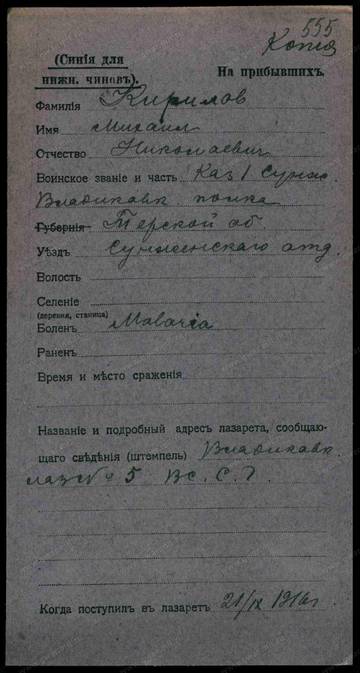 555
Копія
(Синія для
нижн. чиновъ).
На прибывшихъ.
Фамилія Кирилов
Имя Михаил
Отчество Николаевич
Воинское званіе и часть Каз 1 Сунж.
Владикавк полка
Губернія Терской об
Уѣздъ Сунженскаго отд.
Волость
Селеніе
(деревня, станица)
Боленъ Malaria
Раненъ
Время и мѣсто сраженія
Названіе и подробный адресъ лазарета, сообщаю-
щаго свѣдѣнія (штемпель) Владикавк.
лаз № 5 В С. С. Г.
Когда поступилъ въ лазаретъ 21/IX 1916 г